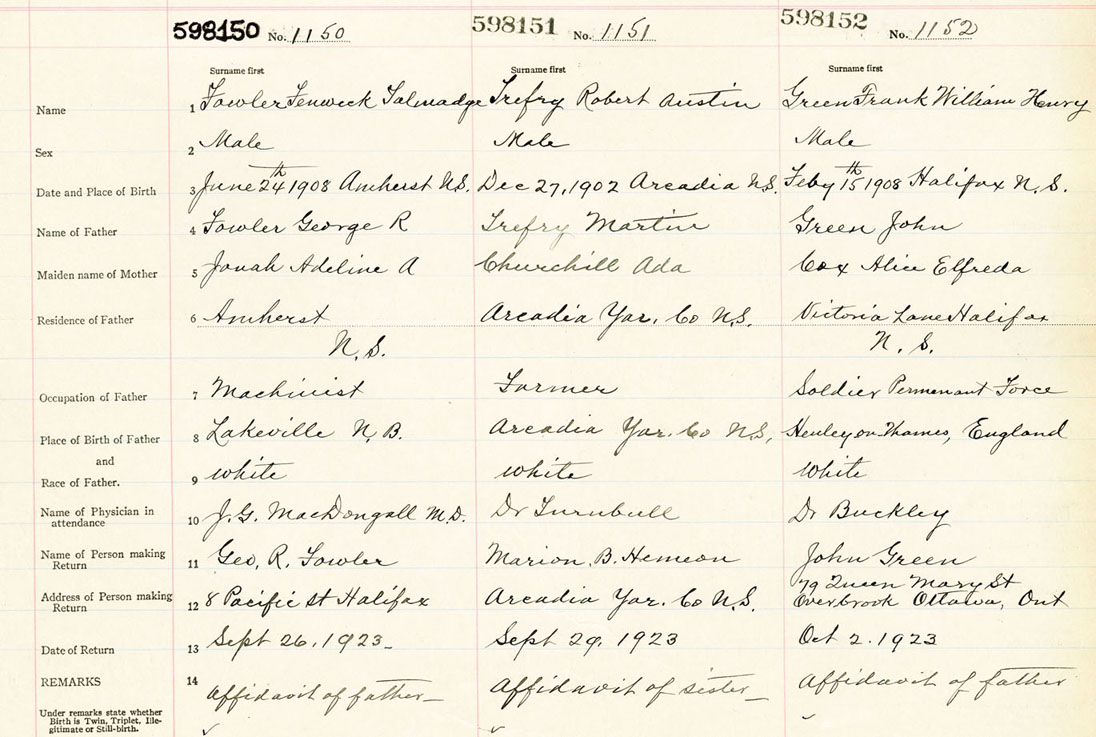 598150 No. 1150 598151 No. 1151 598152 No. 1152
Surname first Surname first Surname first
Name 1 Fowler Fenwick Talmadge Trefry Robert Austin Green Frank William Henry
Sex 2 Male Male Male
Date and Place of Birth 3 June 24th 1908 Amherst N.S. Dec 27, 1902 Arcadia N.S. Feby 15th 1908 Halifax N.S.
Name of Father 4 Fowler George R Trefry Martin Green John
Maiden name of Mother 5 Jonah Adeline A Churchill Ada Cox Alice Elfreda
Residence of Father 6 Amherst Arcadia Yar. Co N.S. Victoria Lane Halifax
N.S. N.S.
Occupation of Father 7 Machinist Farmer Soldier Permenant Force
Place of Birth of Father 8 Lakeville N.B. Arcadia Yar. Co N.S, Henley on Thames, England
and
Race of Father. 9 White White White
Name of Physician in attendance 10 J.G. MacDougall M.D. Dr Turnbull Dr Buckley
Name of Person making Return 11 Geo. R. Fowler Marion. B. Hemeon John Green
79 Queen Mary St
Address of Person making Return 12 8 Pacific St Halifax Arcadia Yar. Co N.S. Overbrook Ottawa, Ont
Date of Return 13 Sept 26, 1923_ Sept 29, 1923 Oct 2. 1923
REMARKS 14 Affidavit of father_ Affidavit of sister_ Affidavit of father
Under remarks state whether
Birth is Twin, Triplet, Ille-
gitimate or Still-birth.